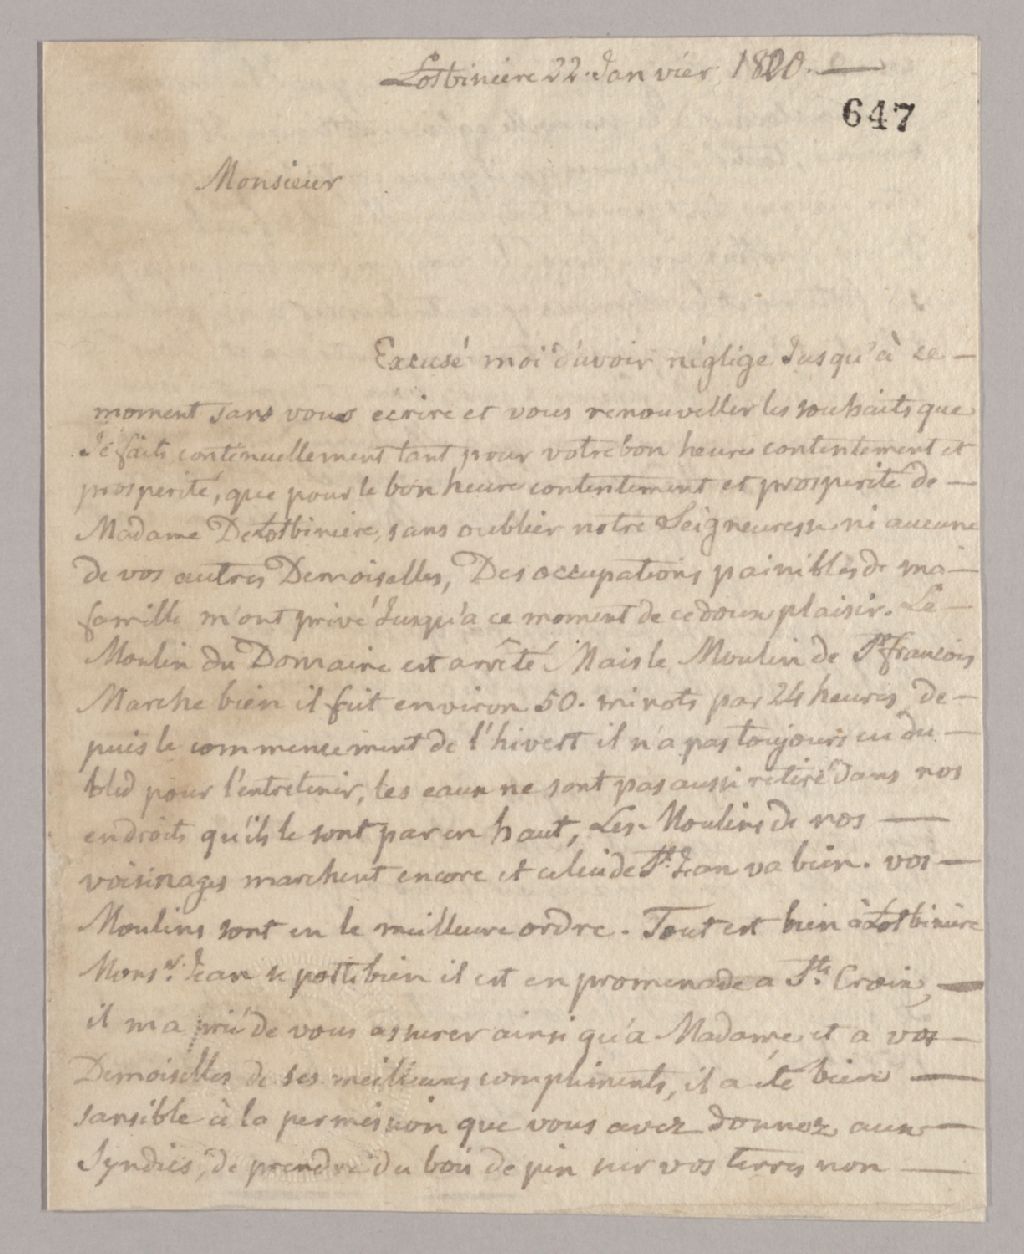 Lotbiniere 22 Janvier 1820.
647
Monsieur
Excusé moi d'avoir néglige Jusqu'à ce
moment sans vous ecrire et vous renouveller les souhaits que
Je faits contenuellement tant pour votre bon heure contentement et
prosperité, que pour le bon heure contentement et prosperité de
Madame DeLotbiniere, sans oublier notre Seigneuresse ni aucune
de vos autres Demoiselles, Des occupations painibles de ma
famille m'ont privé Jusqu'a ce moment de ce doux plaisir. Le
Moulin du Domaine est arrêté Mais le Moulin de St. francois
Marche bien il fait environ 50. minots par 24 heures de-
puis le commencement de l'hivert il n'a pas toujours eu du
bled pour l'entretenir, les eaux ne sont pas aussi retiré dans nos
endroits qu'ils le sont par en haut, Les Moulins de nos
voisinages marchent encore et celui de St. Jean va bien. vos
Moulins sont en le meilleure ordre. Tout est bien à Lotbiniere
Monsr. Jean se potte bien il est en promenade a Ste. Croix,
il m'a prié de vous assurer ainsi qu'a Madame et a vos
Demoiselles de ses meilleures compliments, il a été bien
sansible à la permission que vous avez donnez aux
Syndics, de prendre du bois de pin sur vos terres non